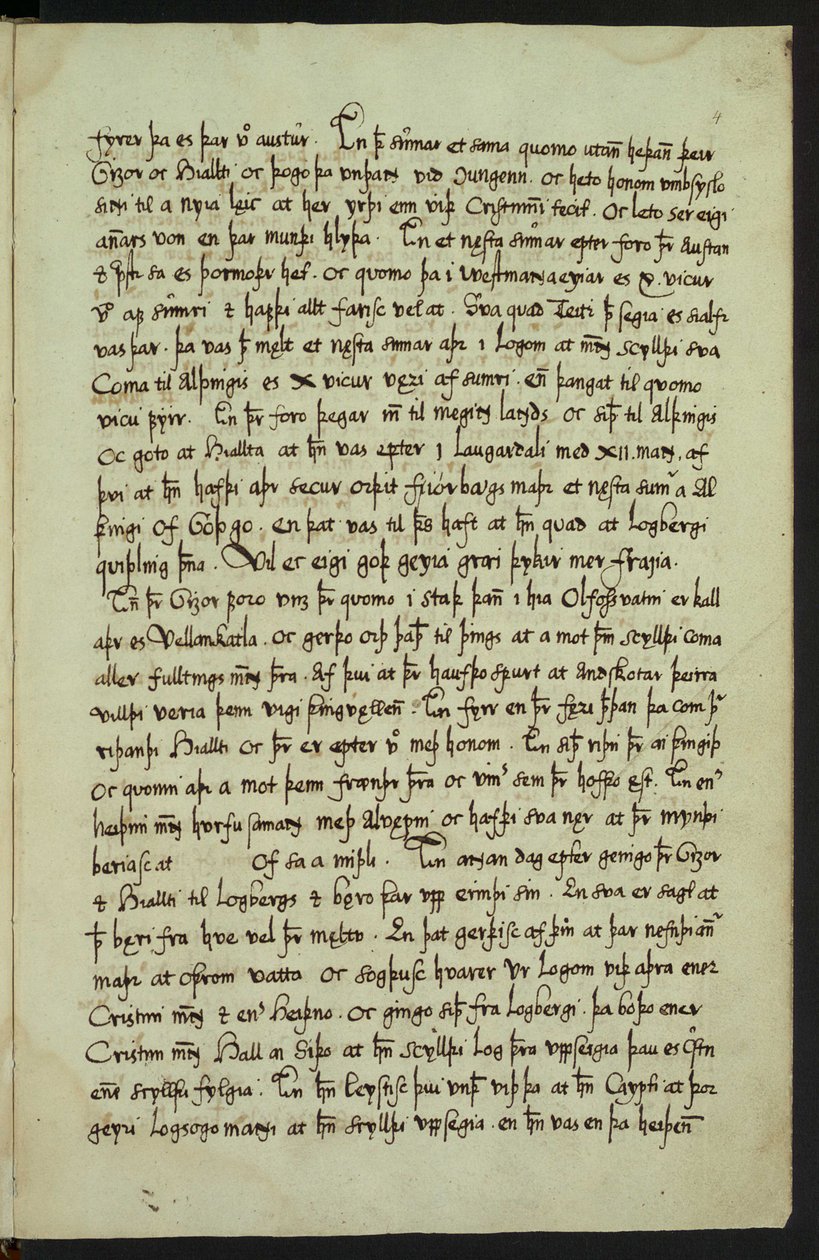 4
fyrer þa es þar vͦ austur. En þ̄ sumar et sama quomo utan̄ heþan̄ þeir
Gizor oc Hiallti oc þogo þa vnþaɴ vid Jungenn. oc heto honom vmbsyslo
siɴi til a nyia leic at her yrþi enn viþ Cristninni tecit. Oc leto ser eigi
an̄ars von en þar munþi hlyþa. En et nęsta sumar epter foro þr̄ austan
⁊ p̄str sa es þormoþr het. oc quomo þa i westmaɴaeyiar es x. vicur
vͦ af sumri ⁊ hafþi allt farisc vel at. Sva quad Teitr þ̄ segia es sialfr
vas þar. þa vas þ̄ męlt et nęsta sumar aþr i Logom at men̄ scylldi sva
Coma til Alþingis es x vicur vęri af sumri. en̄ þangat til quomo
vicu fyrr. En þr̄ foro þegar in̄ til megiɴ laɴds oc siþ̄ til Alþingis
Oc goto at Hiallta at hn̄ vas epter j Laugardali med XII. maɴ. af
þvi at hn̄ hafþi aþr secur orþit fiórbavgs maþr et nęsta sum̄ a Al
þingi of Goþgo. en þat vas til þs̄ haft at hn̄ quad at logbergi
quiþling þn̄a. Vil ec eigi goþ geyia grœi þykir mer fraiia.
En̄ þr̄ Gizor foro vnz þr̄ quomo i staþ þan̄ i hia Olfossvatni er kall
aþr es Vellankatla. oc gerþo orþ þaþ̄ til þings at a mot þm̄ scyllþi coma
aller fulltings men̄ þr̄a. Af þui at þr̄ haufþo spurt at andskotar þeirra
villþi veria þeim vigi þingvęllen̄. En fyrr en þr̄ fęri þþ̄an þa com þr̄
riþanþi Hiallti oc þr̄ er epter vͦ meþ honom. En siþ̄ riþu þr̄ a þingiþ
oc quomu aþr a mot þeim frænþr þr̄a oc vin̄ sem þr̄ hofþo ęst. En en̄
heiþnu men̄ hurfu samaɴ meþ alvępni oc hafþi sva nęr at þr̄ mynþi
beriasc at of sa a miþli. En aɴan dag epter gengo þr̄ Gizor
⁊ Hiallti til Logbergs ⁊ bęro þar upp erinþi sin. En sva er sagt at
þ̄ bęri fra hve vel þr̄ męlto. En þat gerþisc af þui at þar nefnþi an̄
maþr at oþrom vatta oc sogþusc hvarer ur logom viþ aþra ener
Cristnu men̄ ⁊ en̄ heiþno. oc gingo siþ̄ fra Logbergi. þa boþo ener
Cristnu men̄ Hall a Siþo at hn̄ scylldi log þr̄a uppsegia þau es cͥstn
en̄e scyllþi fylgia. En hn̄ leystisc þui unþ̄ viþ þa at hn̄ caypti at þor
geiri logsogo maɴi at hn̄ scyllþi uppsegia. en hn̄ vas en þa heiþen̄